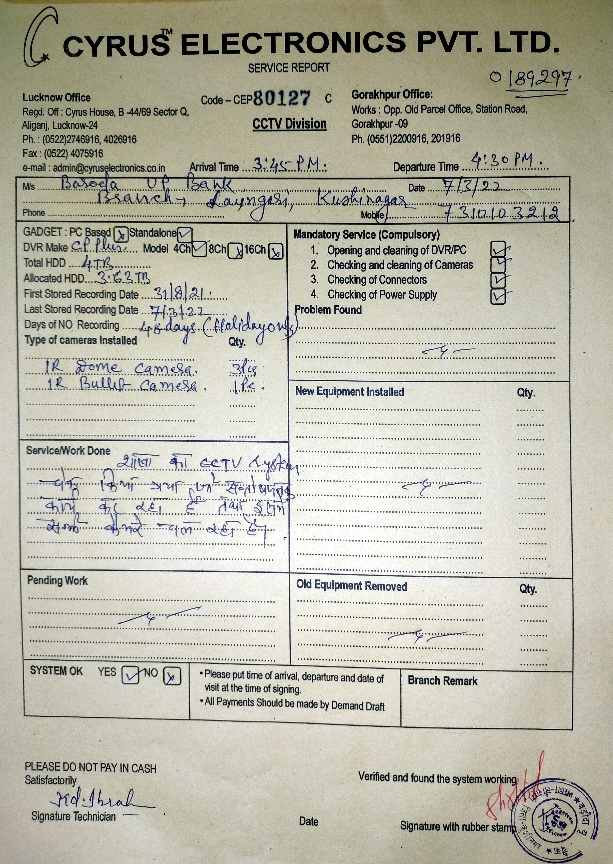 CYRUS™ ELECTRONICS PVT. LTD.
SERVICE REPORT
0189297
Lucknow Office
Regd. Off : Cyrus House, B -44/69 Sector Q,
Aliganj, Lucknow-24
Ph. : (0522)2746916, 4026916
Fax : (0522) 4075916
e-mail : admin@cyruselectronics.co.in
Code – CEP 80127 C
CCTV Division
Gorakhpur Office:
Works : Opp. Old Parcel Office, Station Road,
Gorakhpur -09
Ph. (0551)2200916, 201916
Arrival Time 3:45 P.M.
Departure Time 4:30 P.M.
M/s Baroda UP Bank Date 7/3/22
Branch, Kushinagar
Phone Mobile 7310103212
GADGET : PC Based Standalone
DVR Make CP Plus Model 4Ch 8Ch 16Ch
Total HDD 4TB
Allocated HDD 3.63TB
First Stored Recording Date 31/8/21
Last Stored Recording Date 7/3/22
Days of NO Recording 48 days (Holiday only)
Type of cameras Installed Qty.
IR Dome Camera. 3Pcs
IR Bullet Camera. 1Pc.
Mandatory Service (Compulsory)
1. Opening and cleaning of DVR/PC
2. Checking and cleaning of Cameras
3. Checking of Connectors
4. Checking of Power Supply
Problem Found
New Equipment Installed Qty.
Service/Work Done
शाखा का CCTV System
चेक किया गया जो सन्तोषजनक
कार्य कर रहा है तथा इसमें
सभी कैमरे चल रहा है।
Pending Work
Old Equipment Removed Qty.
SYSTEM OK YES NO
• Please put time of arrival, departure and date of
visit at the time of signing.
• All Payments Should be made by Demand Draft
Branch Remark
PLEASE DO NOT PAY IN CASH
Satisfactorily
Signature Technician
Date
Verified and found the system working
Signature with rubber stamp